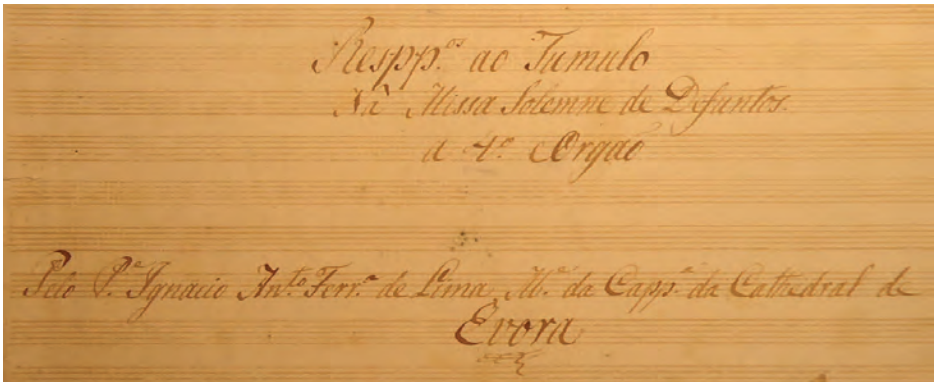 Respp.os ao Tumulo
Na Missa Solemne de Defuntos.
a 4.o e Orgaõ
Pelo P.e Ignacio Ant.o Ferr.a de Lima, M.e da Capp.a da Cathedral de
Evora